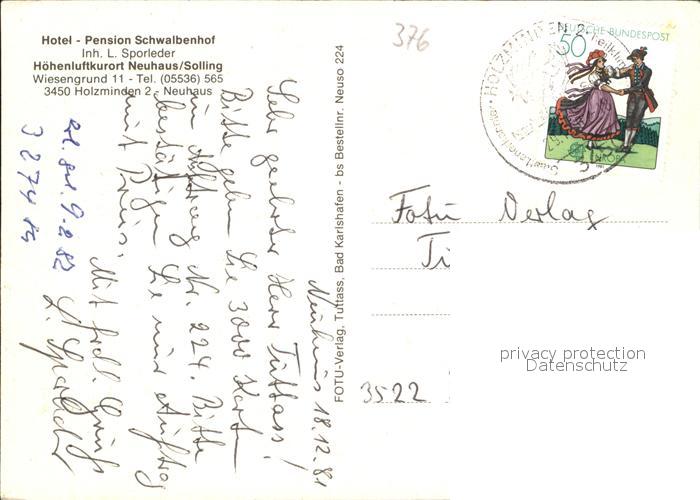 Hotel - Pension Schwalbenhof
Inh. L. Sporleder
Höhenluftkurort Neuhaus/Solling
Wiesengrund 11 - Tel. (05536) 565
3450 Holzminden 2 - Neuhaus
376
HOLZMINDEN 2
DEUTSCHE BUNDESPOST
50
EUROPA
FOTU-Verlag, Tuttass, Bad Karlshafen - bs Bestellnr. Neuso 224
Neuhaus 18.12.81
Sehr geehrter Herr Tuttass!
Bitte geben Sie 3000 Karten
in Auftrag Nr. 224. Bitte
bestätigen Sie mir Auftrag
mit Preis.
Mit frdl. Gruß
L. Sporleder
9.2.82
Fotu Verlag
Ti
3522
privacy protection
Datenschutz